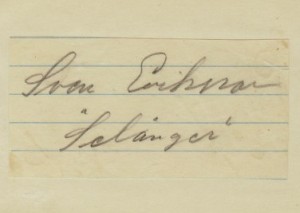 Sven Eriksson
"Selånger"